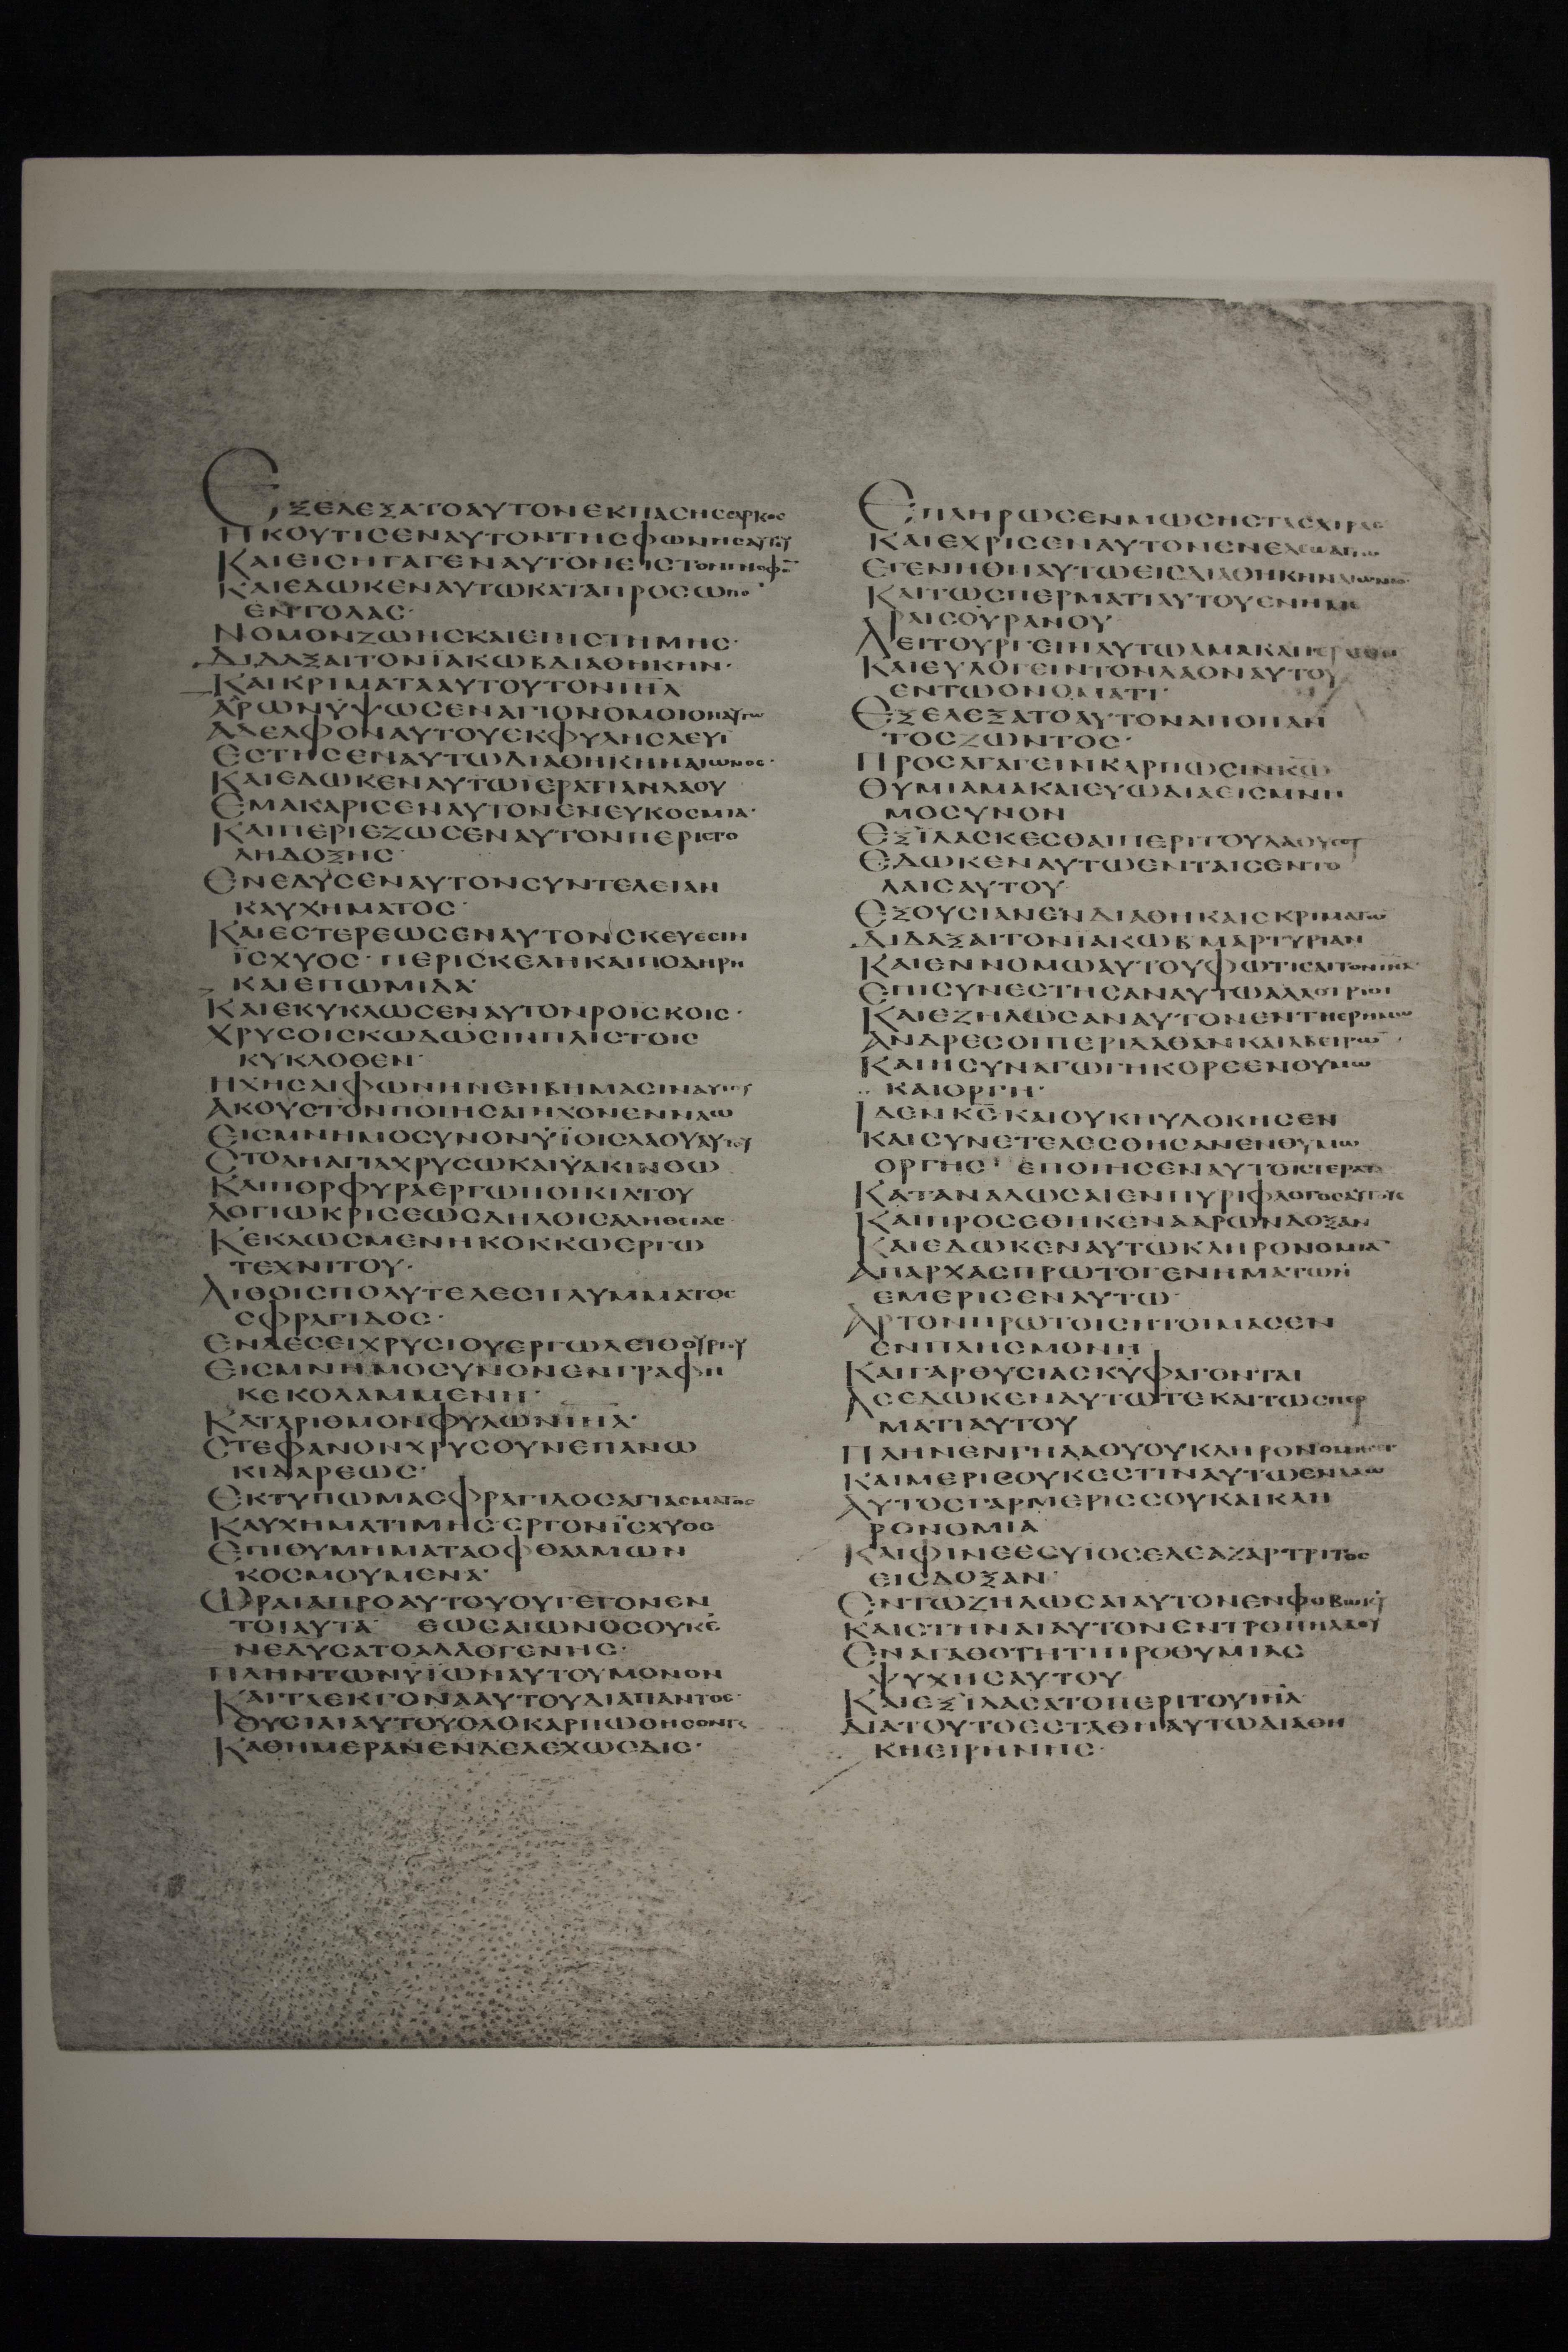 ΕΞΕΛΕΞΑΤΟΑΥΤΟΝΕΚΠΑCΗCCΑΡΚΟC
ΗΚΟΥΤΙCΕΝΑΥΤΟΝΤΗCΦΩΝΗCΑΥΤΟΥ
ΚΑΙΕΙCΗΓΑΓΕΝΑΥΤΟΝΕΙCΤΟΝΓΝΟΦΟ̅
ΚΑΙΕΔΩΚΕΝΑΥΤΩΚΑΤΑΠΡΟCΩΠΟ̅
ΕΝΤΟΛΑC·
ΝΟΜΟΝΖΩΗCΚΑΙΕΠΙCΤΗΜΗC·
ΔΙΔΑΞΑΙΤΟΝΪΑΚΩΒΔΙΑΘΗΚΗΝ·
ΚΑΙΚΡΙΜΑΤΑΑΥΤΟΥΤΟΝΙΗΛ̅
ΑΡΩΝΫΨΩCΕΝΑΓΙΟΝΟΜΟΙΟΝΑΥΤΩ
ΑΔΕΛΦΟΝΑΥΤΟΥΕΚΦΥΛΗCΛΕΥΙ
ΕCΤΗCΕΝΑΥΤΩΔΙΑΘΗΚΗΝΑΙΩΝΟC·
ΚΑΙΕΔΩΚΕΝΑΥΤΩΪΕΡΑΤΙΑΝΛΑΟΥ
ΕΜΑΚΑΡΙCΕΝΑΥΤΟΝΕΝΕΥΚΟCΜΙΑ·
ΚΑΙΠΕΡΙΕΖΩCΕΝΑΥΤΟΝΠΕΡΙCΤΟ
ΛΗΔΟΞΗC·
ΕΝΕΔΥCΕΝΑΥΤΟΝCΥΝΤΕΛΕΙΑΝ
ΚΑΥΧΗΜΑΤΟC·
ΚΑΙΕCΤΕΡΕΩCΕΝΑΥΤΟΝCΚΕΥΕCΙΝ
ΪCΧΥΟC·ΠΕΡΙCΚΕΛΗΚΑΙΠΟΔΗΡΗ
ΚΑΙΕΠΩΜΙΔΑ·
ΚΑΙΕΚΥΚΛΩCΕΝΑΥΤΟΝΡΟΪCΚΟΙC·
ΧΡΥCΟΙCΚΩΔΩCΙΝΠΛΙCΤΟΙC
ΚΥΚΛΟΘΕΝ·
ΗΧΗCΑΙΦΩΝΗΝΕΝΒΗΜΑCΙΝΑΥΤΟΥ
ΑΚΟΥCΤΟΝΠΟΙΗCΑΙΗΧΟΝΕΝΝΑΩ
ΕΙCΜΝΗΜΟCΥΝΟΝΫΪΟΙCΛΑΟΥΑΥΤΟΥ
CΤΟΛΗΑΓΙΑΧΡΥCΩΚΑΙΫΑΚΙΝΘΩ
ΚΑΙΠΟΡΦΥΡΑΕΡΓΩΠΟΙΚΙΛΤΟΥ
ΛΟΓΙΩΚΡΙCΕΩCΔΗΛΟΙCΑΛΗΘΕΙΑC
ΚΕΚΛΩCΜΕΝΗΚΟΚΚΩΕΡΓΩ
ΤΕΧΝΙΤΟΥ·
ΛΙΘΟΙCΠΟΛΥΤΕΛΕCΙΓΛΥΜΜΑΤΟC
CΦΡΑΓΙΔΟC·
ΕΝΔΕCΕΙΧΡΥCΙΟΥΕΡΓΩΛΕΙΘΟΥΡΓΟΥ
ΕΙCΜΝΗΜΟCΥΝΟΝΕΝΓΡΑΦΗ
ΚΕΚΟΛΑΜΜΕΝΗ·
ΚΑΤΑΡΙΘΜΟΝΦΥΛΩΝΙΗΛ̅·
CΤΕΦΑΝΟΝΧΡΥCΟΥΝΕΠΑΝΩ
ΚΙΔΑΡΕΩC·
ΕΚΤΥΠΩΜΑCΦΡΑΓΙΔΟCΑΓΙΑCΜΑΤΟC
ΚΑΥΧΗΜΑΤΙΜΗCΕΡΓΟΝΪCΧΥΟC
ΕΠΙΘΥΜΗΜΑΤΑΟΦΘΑΛΜΩΝ
ΚΟCΜΟΥΜΕΝΑ·
ΩΡΑΙΑΠΡΟΑΥΤΟΥΟΥΓΕΓΟΝΕΝ
ΤΟΙΑΥΤΑ ΕΩCΑΙΩΝΟCΟΥΚΕ
ΝΕΔΥCΑΤΟΑΛΛΟΓΕΝΗC·
ΠΛΗΝΤΩΝΫΪΩΝΑΥΤΟΥΜΟΝΟΝ
ΚΑΙΤΑΕΚΓΟΝΑΑΥΤΟΥΔΙΑΠΑΝΤΟC·
ΘΥCΙΑΙΑΥΤΟΥΟΛΟΚΑΡΠΩΘΗCΟΝΤΕ
ΚΑΘΗΜΕΡΑΝΕΝΔΕΛΕΧΩCΔΙC·
ΕΠΛΗΡΩCΕΝΜΩCΗCΤΑCΧΙΡΑC
ΚΑΙΕΧΡΙCΕΝΑΥΤΟΝΕΝΕΛΕΩΑΓΙΩ
ΕΓΕΝΗΘΗΑΥΤΩΕΙCΔΙΑΘΗΚΗΝΑΙΩΝΙΟ̅
ΚΑΙΤΩCΠΕΡΜΑΤΙΑΥΤΟΥΕΝΗΜΕ
ΡΑΙCΟΥΡΑΝΟΥ
ΛΕΙΤΟΥΡΓΕΙΝΑΥΤΩΑΜΑΚΑΙΙΕΡΑΤΕΥΕΙΝ
ΚΑΙΕΥΛΟΓΕΙΝΤΟΝΛΑΟΝΑΥΤΟΥ
ΕΝΤΩΟΝΟΜΑΤΙ·
ΕΞΕΛΕΞΑΤΟΑΥΤΟΝΑΠΟΠΑΝ
ΤΟCΖΩΝΤΟC·
ΠΡΟCΑΓΑΓΕΙΝΚΑΡΠΩCΙΝΚΩ̅
ΘΥΜΙΑΜΑΚΑΙΕΥΩΔΙΑΕΙCΜΝΗ
ΜΟCΥΝΟΝ
ΕΞΪΛΑCΚΕCΘΑΙΠΕΡΙΤΟΥΛΑΟΥCΟΥ
ΕΔΩΚΕΝΑΥΤΩΕΝΤΑΙCΕΝΤΟ
ΛΑΙCΑΥΤΟΥ
ΕΞΟΥCΙΑΝΕΝΔΙΑΘΗΚΑΙCΚΡΙΜΑΤΩ̅
ΔΙΔΑΞΑΙΤΟΝΪΑΚΩΒΜΑΡΤΥΡΙΑΝ
ΚΑΙΕΝΝΟΜΩΑΥΤΟΥΦΩΤΙCΑΙΤΟΝΙΗΛ̅
ΕΠΙCΥΝΕCΤΗCΑΝΑΥΤΩΑΛΛΟΤΡΙΟΙ
ΚΑΙΕΖΗΛΩCΑΝΑΥΤΟΝΕΝΤΗΕΡΗΜΩ
ΑΝΔΡΕCΟΙΠΕΡΙΔΑΘΑΝΚΑΙΑΒΕΙΡΩ̅
ΚΑΙΗCΥΝΑΓΩΓΗΚΟΡΕΕΝΘΥΜΩ
ΚΑΙΟΡΓΗ·
ΪΔΕΝΚC̅ΚΑΙΟΥΚΗΥΔΟΚΗCΕΝ
ΚΑΙCΥΝΕΤΕΛΕCΘΗCΑΝΕΝΘΥΜΩ
ΟΡΓΗC· ΕΠΟΙΗCΕΝΑΥΤΟΙCΤΕΡΑΤΑ
ΚΑΤΑΝΑΛΩCΑΙΕΝΠΥΡΙΦΛΟΓΟCΑΥΤΟΥC
ΚΑΙΠΡΟCΕΘΗΚΕΝΑΑΡΩΝΔΟΞΑΝ
ΚΑΙΕΔΩΚΕΝΑΥΤΩΚΛΗΡΟΝΟΜΙΑ̅
ΑΠΑΡΧΑCΠΡΩΤΟΓΕΝΗΜΑΤΩΝ
ΕΜΕΡΙCΕΝΑΥΤΩ·
ΑΡΤΟΝΠΡΩΤΟΙCΗΤΟΙΜΑCΕΝ
ΕΝΠΛΗCΜΟΝΗ
ΚΑΙΓΑΡΘΥCΙΑCΚΥΦΑΓΟΝΤΑΙ
ΑCΕΔΩΚΕΝΑΥΤΩΤΕΚΑΙΤΩCΠΕΡ
ΜΑΤΙΑΥΤΟΥ
ΠΛΗΝΕΝΓΗΛΑΟΥΟΥΚΛΗΡΟΝΟΜΗCΕΙ
ΚΑΙΜΕΡΙCΟΥΚΕCΤΙΝΑΥΤΩΕΝΛΑΩ
ΑΥΤΟCΓΑΡΜΕΡΙCCΟΥΚΑΙΚΛΗ
ΡΟΝΟΜΙΑ
ΚΑΙΦΙΝΕΕCΥΙΟCΕΛΕΑΖΑΡΤΡΙΤΟC
ΕΙCΔΟΞΑΝ·
ΕΝΤΩΖΗΛΩCΑΙΑΥΤΟΝΕΝΦΟΒΩΚΥ̅
ΚΑΙCΤΗΝΑΙΑΥΤΟΝΕΝΤΡΟΠΗΛΑΟΥ
ΕΝΑΓΑΘΟΤΗΤΙΠΡΟΘΥΜΙΑC
ΨΥΧΗCΑΥΤΟΥ
ΚΑΙΕΞΙΛΑCΑΤΟΠΕΡΙΤΟΥΙΗΛ̅
ΔΙΑΤΟΥΤΟΕCΤΑΘΗΑΥΤΩΔΙΑΘΗ
ΚΗΕΙΡΗΝΗC·